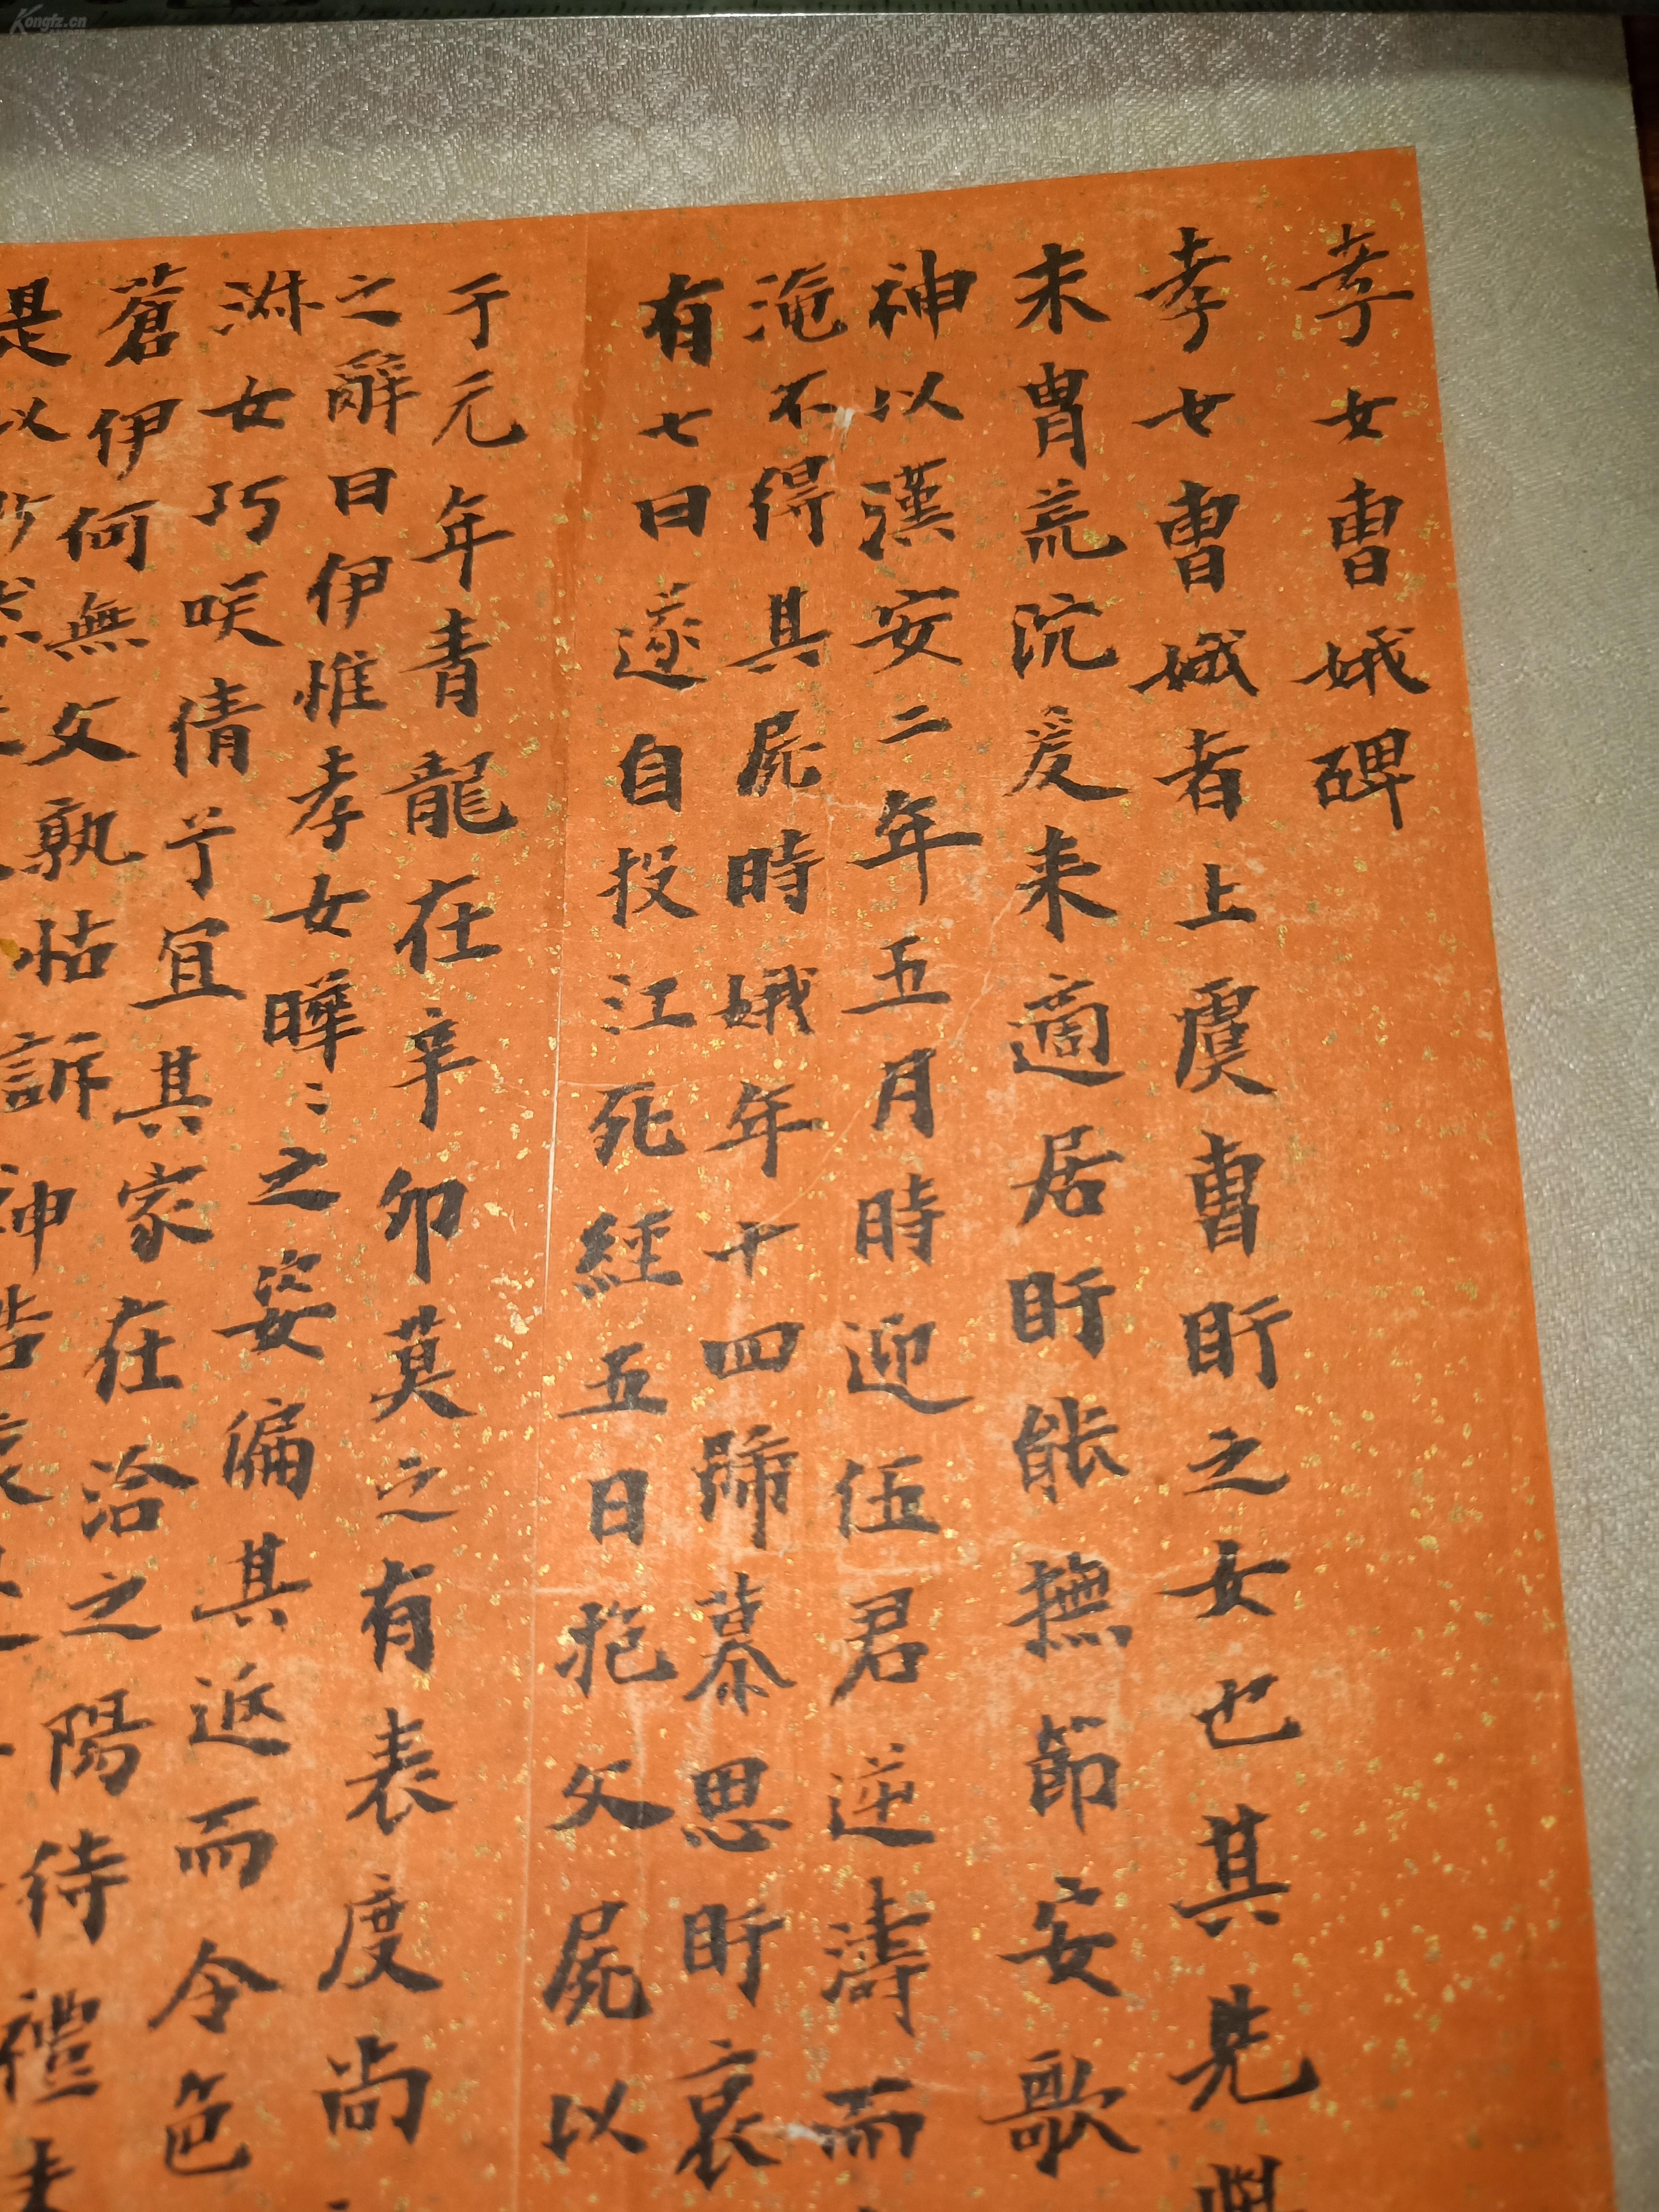 孝女曹娥碑
孝女曹娥者上虞曹盱之女也其先與
末胄荒沉爰来適居盱能撫節安歌
神以漢安二年五月時迎伍君逆濤而
淹不得其屍時娥年十四號慕思盱哀
有七日遂自投江死經五日抱父屍以
于元年青龍在辛卯莫之有表度尚
之辭曰伊惟孝女曄〻之姿偏其返而令色
淋女巧咲倩兮宜其家在洽之陽待禮未
蒼伊何無父孰怙訴神告哀
是以眇然
Kongfz.cn